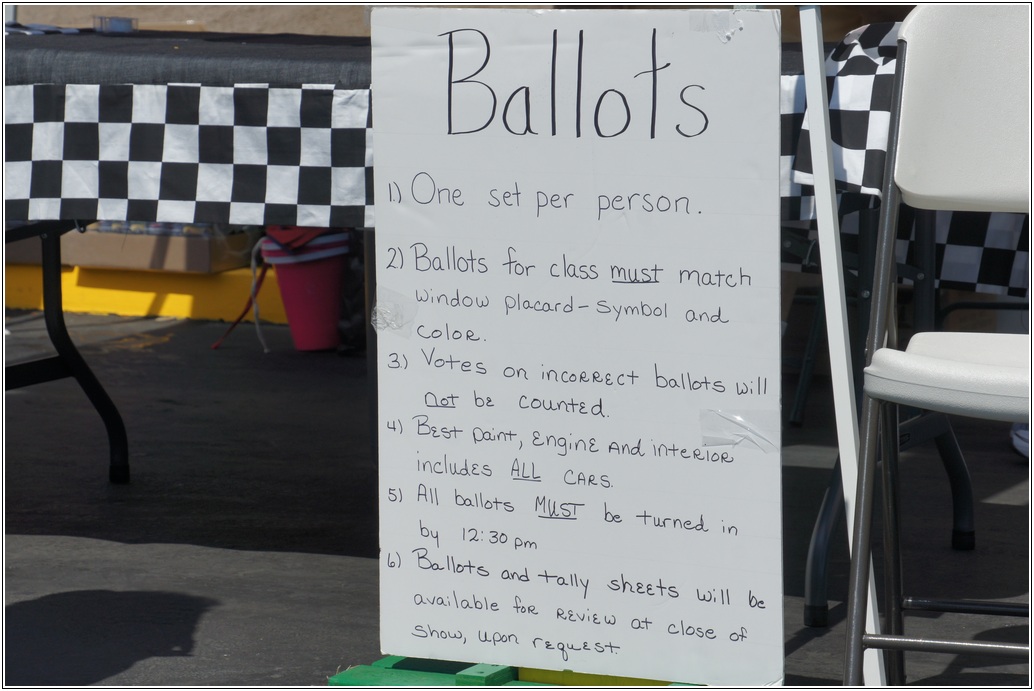 Ballots
1.) One set per person.
2) Ballots for class must match
window placard - symbol and
color.
3.) Votes on incorrect ballots will
not be counted.
4) Best paint, Engine and interior
includes ALL cars.
5) All ballots MUST be turned in
by 12:30 pm
6) Ballots and tally sheets will be
available for review at close of
show, upon request.